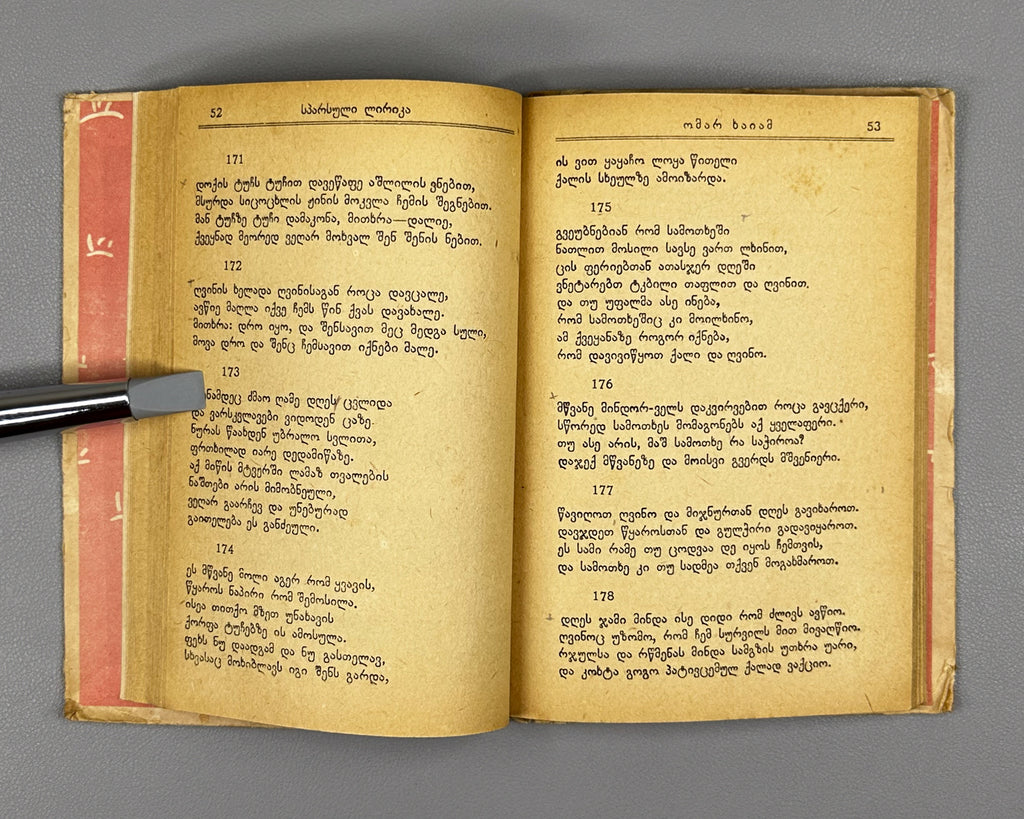 52
სპარსული ლირიკა
171
დოქის ტუჩს ტუჩით დავეწაფე აშლილის ვნებით,
მსურდა სიცოცხლის ჟინის მოკვლა ჩემის შეგნებით.
მან ტუჩზე ტუჩი დამაკონა, მითხრა—დალიე,
ქვეყნად მეორედ ვეღარ მოხვალ შენ შენის ნებით.
172
ღვინის ხელადა ღვინისაგან როცა დავცალე,
ავწიე მაღლა იქვე ჩემს წინ ქვას დავახალე.
მითხრა: დრო იყო, და შენსავით მეც მედგა სული,
მოვა დრო და შენც ჩემსავით იქნები მალე.
173
ძმაო ღამე დღეს ცვლიდა
და ვარსკვლავები ვიდოდენ ცაზე.
ნურას წაახდენ უბრალო სვლითა,
ფრთხილად იარე დედამიწაზე.
აქ მიწის მტვერში ლამაზ თვალების
ნაშთები არის მიმობნეული,
ვეღარ გაარჩევ და უნებურად
გაითელება ეს განძეული.
174
ეს მწვანე მოლი აგერ რომ ყვავის,
წყაროს ნაპირი რომ შემოსილა.
ისეა თითქო მზეთ უნახავის
ქორფა ტუჩებზე ის ამოსულა.
ფეხს ნუ დაადგამ და ნუ გასთელავ,
სხვასაც მოხიბლავს იგი შენს გარდა,
ომარ ხაიამ
53
ის ვით ყაყაჩო ლოყა წითელი
ქალის სხეულზე ამოიზარდა.
175
გვეუბნებიან რომ სამოთხეში
ნათლით მოსილი სავსე ვართ ლხინით,
ცის ფერიებთან ათასჯერ დღეში
ვნეტარებთ ტკბილი თაფლით და ღვინით.
და თუ უფალმა ასე ინება,
რომ სამოთხეშიც კი მოილხინო,
ამ ქვეყანაზე როგორ იქნება,
რომ დავივიწყოთ ქალი და ღვინო.
176
მწვანე მინდორ-ველს დაკვირვებით როცა გავცქერი,
სწორედ სამოთხეს მომაგონებს აქ ყველაფერი.
თუ ასე არის, მაშ სამოთხე რა საჭიროა?
დაჯექ მწვანეზე და მოისვი გვერდს მშვენიერი.
177
წავიღოთ ღვინო და მიჯნურთან დღეს გავიხაროთ.
დავჯდეთ წყაროსთან და გულჭირი გადავიყაროთ.
ეს სამი რამე თუ ცოდვაა დე იყოს ჩემთვის,
და სამოთხე კი თუ სადმეა თქვენ მოგახმაროთ.
178
დღეს ჯამი მინდა ისე დიდი რომ ძლივს ავწიო.
ღვინოც უზომო, რომ ჩემ სურვილს მით მივაღწიო.
რჯულსა და რწმენას მინდა სამგზის უთხრა უარი,
და კოხტა გოგო პატივცემულ ქალად ვაქციო.